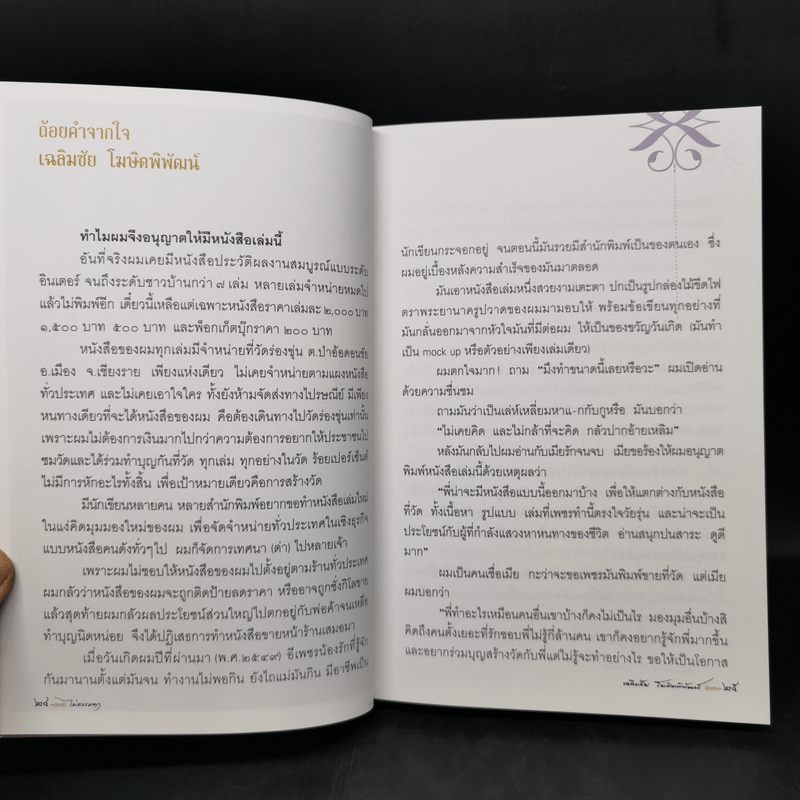 ถ้อยคำจากใจ
เฉลิมชัย โฆษิตพิพัฒน์
ทำไมผมจึงอนุญาตให้มีหนังสือเล่มนี้
อันที่จริงผมเคยมีหนังสือประวัติผลงานสมบูรณ์แบบระดับ
อินเตอร์ จนถึงระดับชาวบ้านกว่า ๗ เล่ม หลายเล่มจำหน่ายหมดไป
แล้วไม่พิมพ์อีก เดี๋ยวนี้เหลือแต่เฉพาะหนังสือราคาเล่มละ ๒,๐๐๐ บาท
๑,๕๐๐ บาท ๕๐๐ บาท และพ็อกเก็ตบุ๊กราคา ๒๐๐ บาท
หนังสือของผมทุกเล่มมีจำหน่ายที่วัดร่องขุ่น ต.ป่าอ้อดอนชัย
อ.เมือง จ.เชียงราย เพียงแห่งเดียว ไม่เคยจำหน่ายตามแผงหนังสือ
ทั่วประเทศ และไม่เคยเอาใจใคร ทั้งยังห้ามจัดส่งทางไปรษณีย์ มีเพียง
หนทางเดียวที่จะได้หนังสือของผม คือต้องเดินทางไปวัดร่องขุ่นเท่านั้น
เพราะผมไม่ต้องการเงินมากไปกว่าความต้องการอยากให้ประชาชนไป
ชมวัดและได้ร่วมทำบุญกันที่วัด ทุกเล่ม ทุกอย่างในวัด ร้อยเปอร์เซ็นต์
ไม่มีการหักอะไรทั้งสิ้น เพื่อเป้าหมายเดียวคือการสร้างวัด
มีนักเขียนหลายคน หลายสำนักพิมพ์อยากขอทำหนังสือเล่มใหม่
ในแง่คิดมุมมองใหม่ของผม เพื่อจัดจำหน่ายทั่วประเทศในเชิงธุรกิจ
แบบหนังสือคนดังทั่วๆไป ผมก็จัดการเทศนา (ด่า) ไปหลายเจ้า
เพราะผมไม่ชอบให้หนังสือของผมไปตั้งอยู่ตามร้านทั่วประเทศ
ผมกลัวว่าหนังสือของผมจะถูกติดป้ายลดราคา หรืออาจถูกชั่งกิโลขาย
แล้วสุดท้ายผมกลัวผลประโยชน์ส่วนใหญ่ไปตกอยู่กับพ่อค้าจนเหลือ
ทำบุญนิดหน่อย จึงได้ปฏิเสธการทำหนังสือขายหน้าร้านเสมอมา
เมื่อวันเกิดผมปีที่ผ่านมา (พ.ศ.๒๕๔๙) อีเพชรน้องรักที่รู้จัก
กันมานานตั้งแต่มันจน ทำงานไม่พอกิน ยังไถแม่มันกิน มีอาชีพเป็น
๒๔ ไม่ธรรมดา
นักเขียนกระจอกอยู่ จนตอนนี้มันรวยมีสำนักพิมพ์เป็นของตนเอง ซึ่ง
ผมอยู่เบื้องหลังความสำเร็จของมันมาตลอด
มันเอาหนังสือเล่มหนึ่งสวยงามเตะตา ปกเป็นรูปกล่องไม้ขีดไฟ
ตราพระยานาครูปวาดของผมมามอบให้ พร้อมข้อเขียนทุกอย่างที่
มันกลั่นออกมาจากหัวใจมันที่มีต่อผม ให้เป็นของขวัญวันเกิด (มันทำ
เป็น mock up หรือตัวอย่างเพียงเล่มเดียว)
ผมตกใจมาก! ถาม “มึงทำขนาดนี้เลยหรือวะ” ผมเปิดอ่าน
ด้วยความชื่นชม
ถามมันว่าเป็นเล่ห์เหลี่ยมหาแ-กกับกูหรือ มันบอกว่า
“ไม่เคยคิด และไม่กล้าที่จะคิด กลัวปากอ้ายเหลิม”
หลังมันกลับไปผมอ่านกับเมียรักจนจบ เมียขอร้องให้ผมอนุญาต
พิมพ์หนังสือเล่มนี้ด้วยเหตุผลว่า
“พี่น่าจะมีหนังสือแบบนี้ออกมาบ้าง เพื่อให้แตกต่างกับหนังสือ
ที่วัด ทั้งเนื้อหา รูปแบบ เล่มที่เพชรทำนี้ตรงใจวัยรุ่น และน่าจะเป็น
ประโยชน์กับผู้ที่กำลังแสวงหาหนทางของชีวิต อ่านสนุกปนสาระ ดูดี
มาก”
ผมเป็นคนเชื่อเมีย กะว่าจะขอเพชรมันพิมพ์ขายที่วัด แต่เมีย
ผมบอกว่า
“พี่ทำอะไรเหมือนคนอื่นเขาบ้างก็คงไม่เป็นไร มองมุมอื่นบ้างสิ
คิดถึงคนตั้งเยอะที่รักชอบพี่ไม่รู้กี่ล้านคน เขาก็คงอยากรู้จักพี่มากขึ้น
และอยากร่วมบุญสร้างวัดกับพี่แต่ไม่รู้จะทำอย่างไร ขอให้เป็นโอกาส
เฉลิมชัย โฆษิตพิพัฒน์ ๒๕